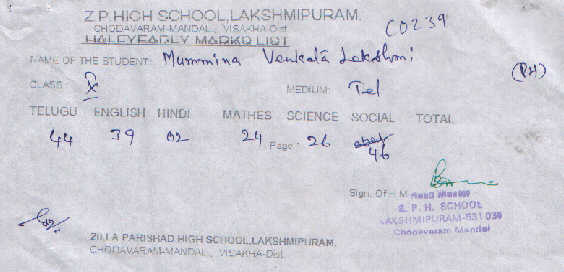 Z.P.HIGH SCHOOL,LAKSHMIPURAM.
C0239
CHODAVARAM-MANDAL., VISAKHA-Dist.
HALFYEARLY MARKS LIST
NAME OF THE STUDENT: Mummina Venkata Lakshmi
(PH)
CLASS : X MEDIUM: Tel
TELUGU ENGLISH HINDI MATHES SCIENCE SOCIAL TOTAL
44 39 02 24 Page : 26 46
Sign. Of H M
Head Master
Z. P. H. SCHOOL
LAKSHMIPURAM-531 036
Chodavaram Mandal
ZILLA PARISHAD HIGH SCHOOL,LAKSHMIPURAM.
CHODAVARAM-MANDAL., VISAKHA-Dist.